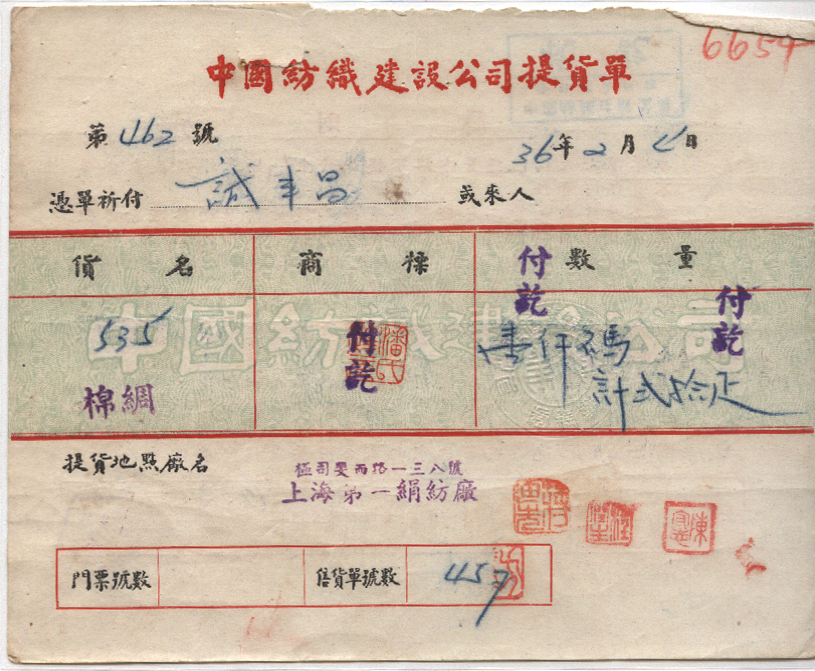 6654
中國紡織建設公司提貨單
第 462 號
36年2月 日
憑單祈付 誠丰昌 或來人
貨名 商標 數量
付訖 付訖
535 付訖 壹仟碼
棉綢 計弍拾疋
中國紡織建設公司
提貨地點廠名
極司斐而路一三八號
上海第一絹紡廠
門票號數 售貨單號數 457